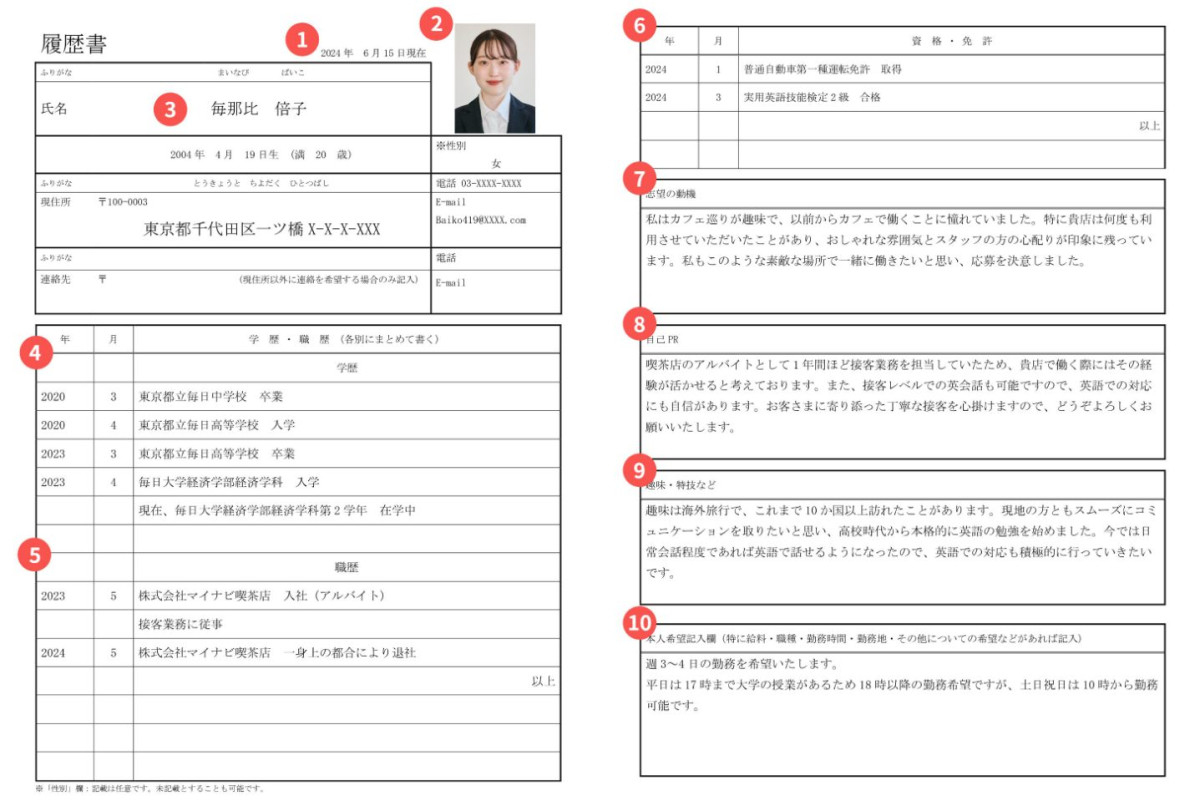 履歴書
1
2024年 6月15日現在
2
ふりがな まいなび ばいこ
氏名
3
毎那比 倍子
2004年 4月 19日生 (満 20 歳)
※性別
女
ふりがな とうきょうと ちよだく ひとつばし
電話 03-XXXX-XXXX
現住所 〒100-0003
東京都千代田区一ツ橋 X-X-X-XXX
E-mail
Baiko419@XXXX.com
ふりがな
電話
連絡先 〒 (現住所以外に連絡を希望する場合のみ記入)
E-mail
4
年 月 学 歴 ・ 職 歴 (各別にまとめて書く)
学歴
2020 3 東京都立毎日中学校 卒業
2020 4 東京都立毎日高等学校 入学
2023 3 東京都立毎日高等学校 卒業
2023 4 毎日大学経済学部経済学科 入学
現在、毎日大学経済学部経済学科第2学年 在学中
5
職歴
2023 5 株式会社マイナビ喫茶店 入社(アルバイト)
接客業務に従事
2024 5 株式会社マイナビ喫茶店 一身上の都合により退社
以上
※「性別」欄:記載は任意です。未記載とすることも可能です。
6
年 月 資 格 ・ 免 許
2024 1 普通自動車第一種運転免許 取得
2024 3 実用英語技能検定2級 合格
以上
7
志望の動機
私はカフェ巡りが趣味で、以前からカフェで働くことに憧れていました。特に貴店は何度も利
用させていただいたことがあり、おしゃれな雰囲気とスタッフの方の心配りが印象に残ってい
ます。私もこのような素敵な場所で一緒に働きたいと思い、応募を決意しました。
8
自己PR
喫茶店のアルバイトとして1年間ほど接客業務を担当していたため、貴店で働く際にはその経
験が活かせると考えております。また、接客レベルでの英会話も可能ですので、英語での対応
にも自信があります。お客さまに寄り添った丁寧な接客を心掛けますので、どうぞよろしくお
願いいたします。
9
趣味・特技など
趣味は海外旅行で、これまで10か国以上訪れたことがあります。現地の方ともスムーズにコミ
ュニケーションを取りたいと思い、高校時代から本格的に英語の勉強を始めました。今では日
常会話程度であれば英語で話せるようになったので、英語での対応も積極的に行っていきたい
です。
10
本人希望記入欄(特に給料・職種・勤務時間・勤務地・その他についての希望などがあれば記入)
週3〜4日の勤務を希望いたします。
平日は17時まで大学の授業があるため18時以降の勤務希望ですが、土日祝日は10時から勤務
可能です。